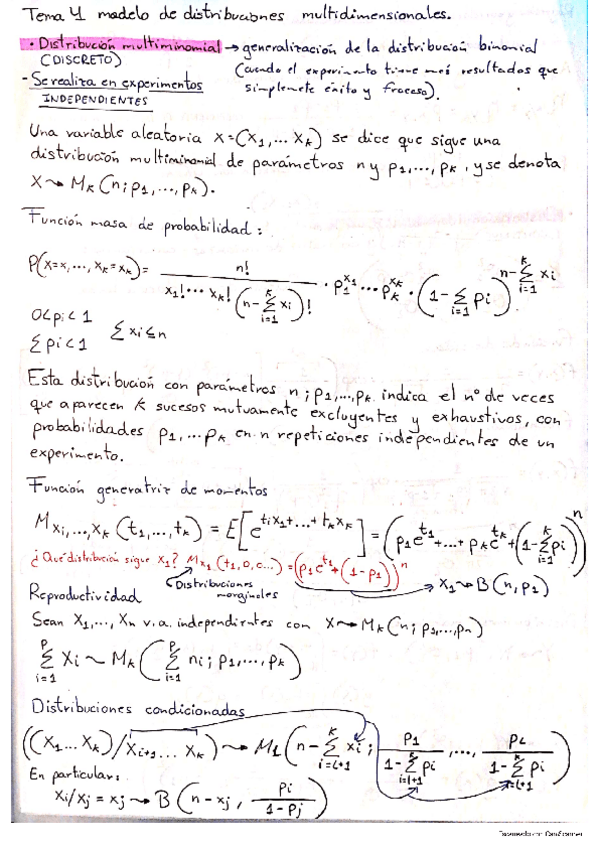 Tema 4 modelo de distribuciones multidimensionales.
· Distribución multiminomial → generalización de la distribución binomial
(DISCRETO) (cuando el experimento tiene más resultados que
- Se realiza en experimentos simplemete éxito y fracaso).
INDEPENDIENTES
Una variable aleatoria X=(X₁,... Xₖ) se dice que sigue una
distribución multiminomial de parámetros n y p₁,..., pₖ, y se denota
X ⤳ Mₖ(n; p₁,..., pₖ).
Función masa de probabilidad:
P(X=x,..., Xₖ=xₖ) = n! / (x₁! ··· xₖ! (n - Σᵢ₌₁ᵏ xᵢ)!) · p₁^x₁ ... pₖ^xₖ · (1 - Σᵢ₌₁ pᵢ)^(n - Σᵢ₌₁ᵏ xᵢ)
0<pᵢ<1
Σpᵢ<1 Σxᵢ≤n
Esta distribución con parámetros n; p₁,..., pₖ indica el nº de veces
que aparecen K sucesos mutuamente excluyentes y exhaustivos, con
probabilidades p₁,... pₖ en n repeticiones independientes de un
experimento.
Función generatriz de momentos
M_{Xᵢ,...,Xₖ}(t₁,..., tₖ) = E[e^{tᵢX₁+...+tₖXₖ}] = (p₁e^{t₁}+...+pₖe^{tₖ}+(1-Σᵢ₌₁ᵏ pᵢ))ⁿ
¿Qué distribución sigue X₁? M_{X₁}(t₁,0,0...) = (p₁e^{t₁}+(1-p₁))ⁿ
Distribuciones marginales → X₁ ⤳ B(n, p₁)
Reproductividad
Sean X₁,..., Xₙ v.a. independientes con X ⤳ Mₖ(n; p₁,..., pₙ)
Σᵢ₌₁ᵖ Xᵢ ~ Mₖ(Σᵢ₌₁ᵖ nᵢ; p₁,..., pₖ)
Distribuciones condicionadas
((X₁...Xₖ)/Xᵢ₊₁...Xₖ) ⤳ M₁(n - Σᵢ₌ₗ₊₁ᵏ xᵢ; p₁/(1-Σᵢ₌ₗ₊₁ᵏ pᵢ),..., pL/(1-Σᵢ₌ₗ₊₁ᵏ pᵢ))
En particular:
Xᵢ/Xⱼ = xⱼ ⤳ B(n-xⱼ, pᵢ/(1-pⱼ))